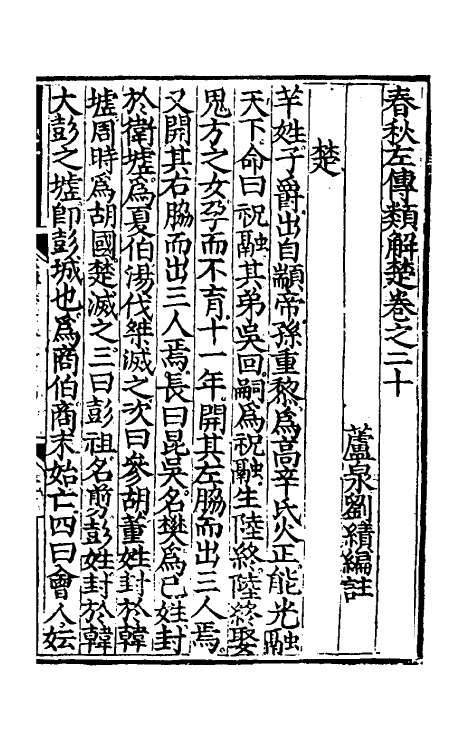 春秋左傳類解楚卷之二十
蘆泉劉績編註
楚
羋姓子爵出自顓帝孫重黎為高辛氏火正能光融
天下命曰祝融其弟吳回嗣為祝融生陸終陸終娶
鬼方之女孕而不育十一年開其左脇而出三人焉
又開其右脇而出三人焉長曰昆吳名樊為己姓封
於衛墟為夏伯湯伐桀滅之次曰參胡董姓封於韓
墟周時為胡國楚滅之三曰彭祖名剪彭姓封於韓
大彭之墟即彭城也為商伯商末始亡四曰會人妘